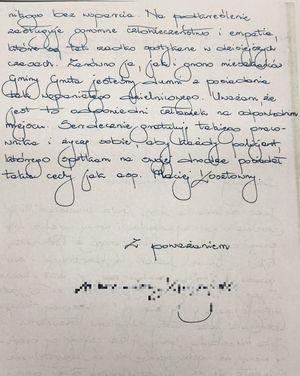 nikogo bez wsparcia. Na podkreślenie
zasługuje ogromne człowieczeństwo i empatia
które są tak rzadko spotykane w dzisiejszych
czasach. Zarówno ja, jak i grono mieszkańców
Gminy Gruta jesteśmy dumni z posiadania
tak wspaniałego dzielnicowego. Uważam, że
jest to odpowiedni człowiek na odpowiednim
miejscu. Serdecznie gratuluję takiego praco-
wnika i życzę sobie, aby każdy policjant,
którego spotkam na swojej drodze posiadał
takie cechy jak asp. Maciej
Z poważaniem